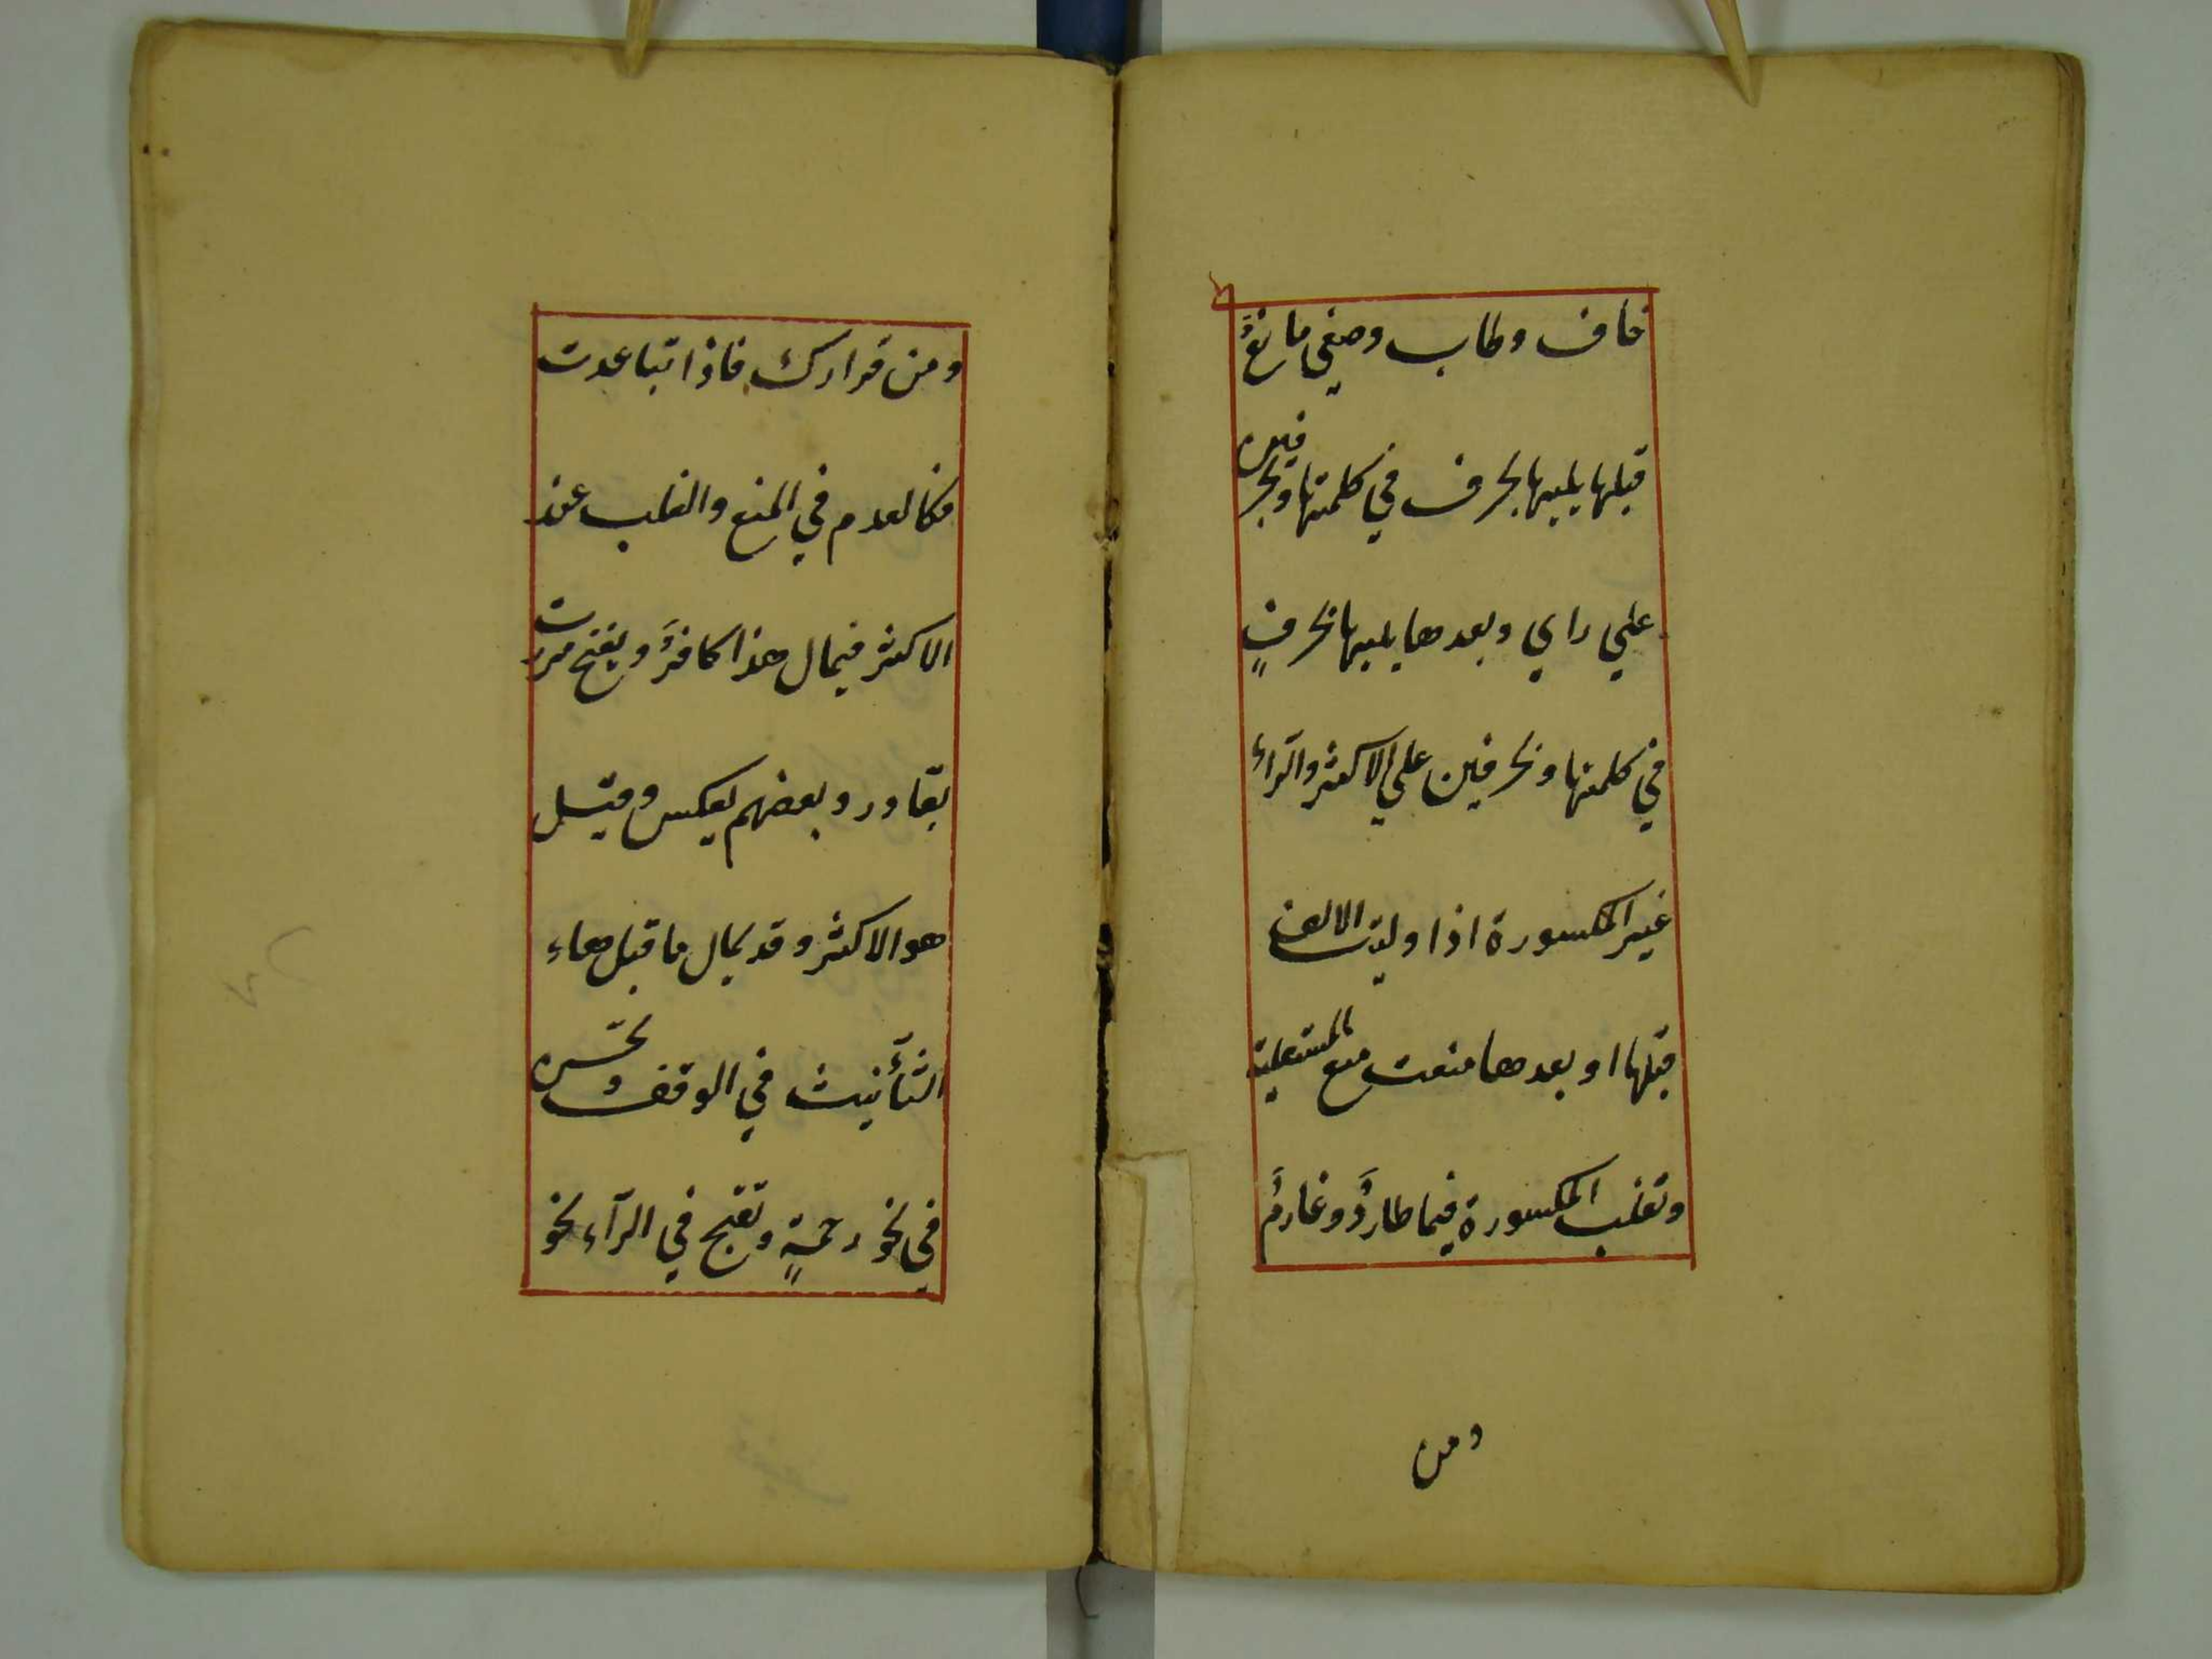 خاف وطاب وصغي مانعٌ
قبلها يليها بحرف في كلمتها وبحرفين
علي راي وبعدها يليها بحرفٍ
في كلمتها وبحرفين علي الاكثر والرّاء
غير المكسورة اذا وليت الالف
قبلها او بعدها منعت منع المستعلية
وتغلب المكسورة فيما طاردٌ وغارمٌ
ومن
ومن قرارك فاذا تباعدت
فكالعدم في المنع والغلب عند
الاكثر فيمال هذا كافرٌ ويفتح مررت
بقادر وبعضهم يعكس وقيل
هو الاكثر وقد يمال ما قبل هاء
التأنيث في الوقف وتحسن
في نحو رحمةٍ وتقبح في الرّاء نحو